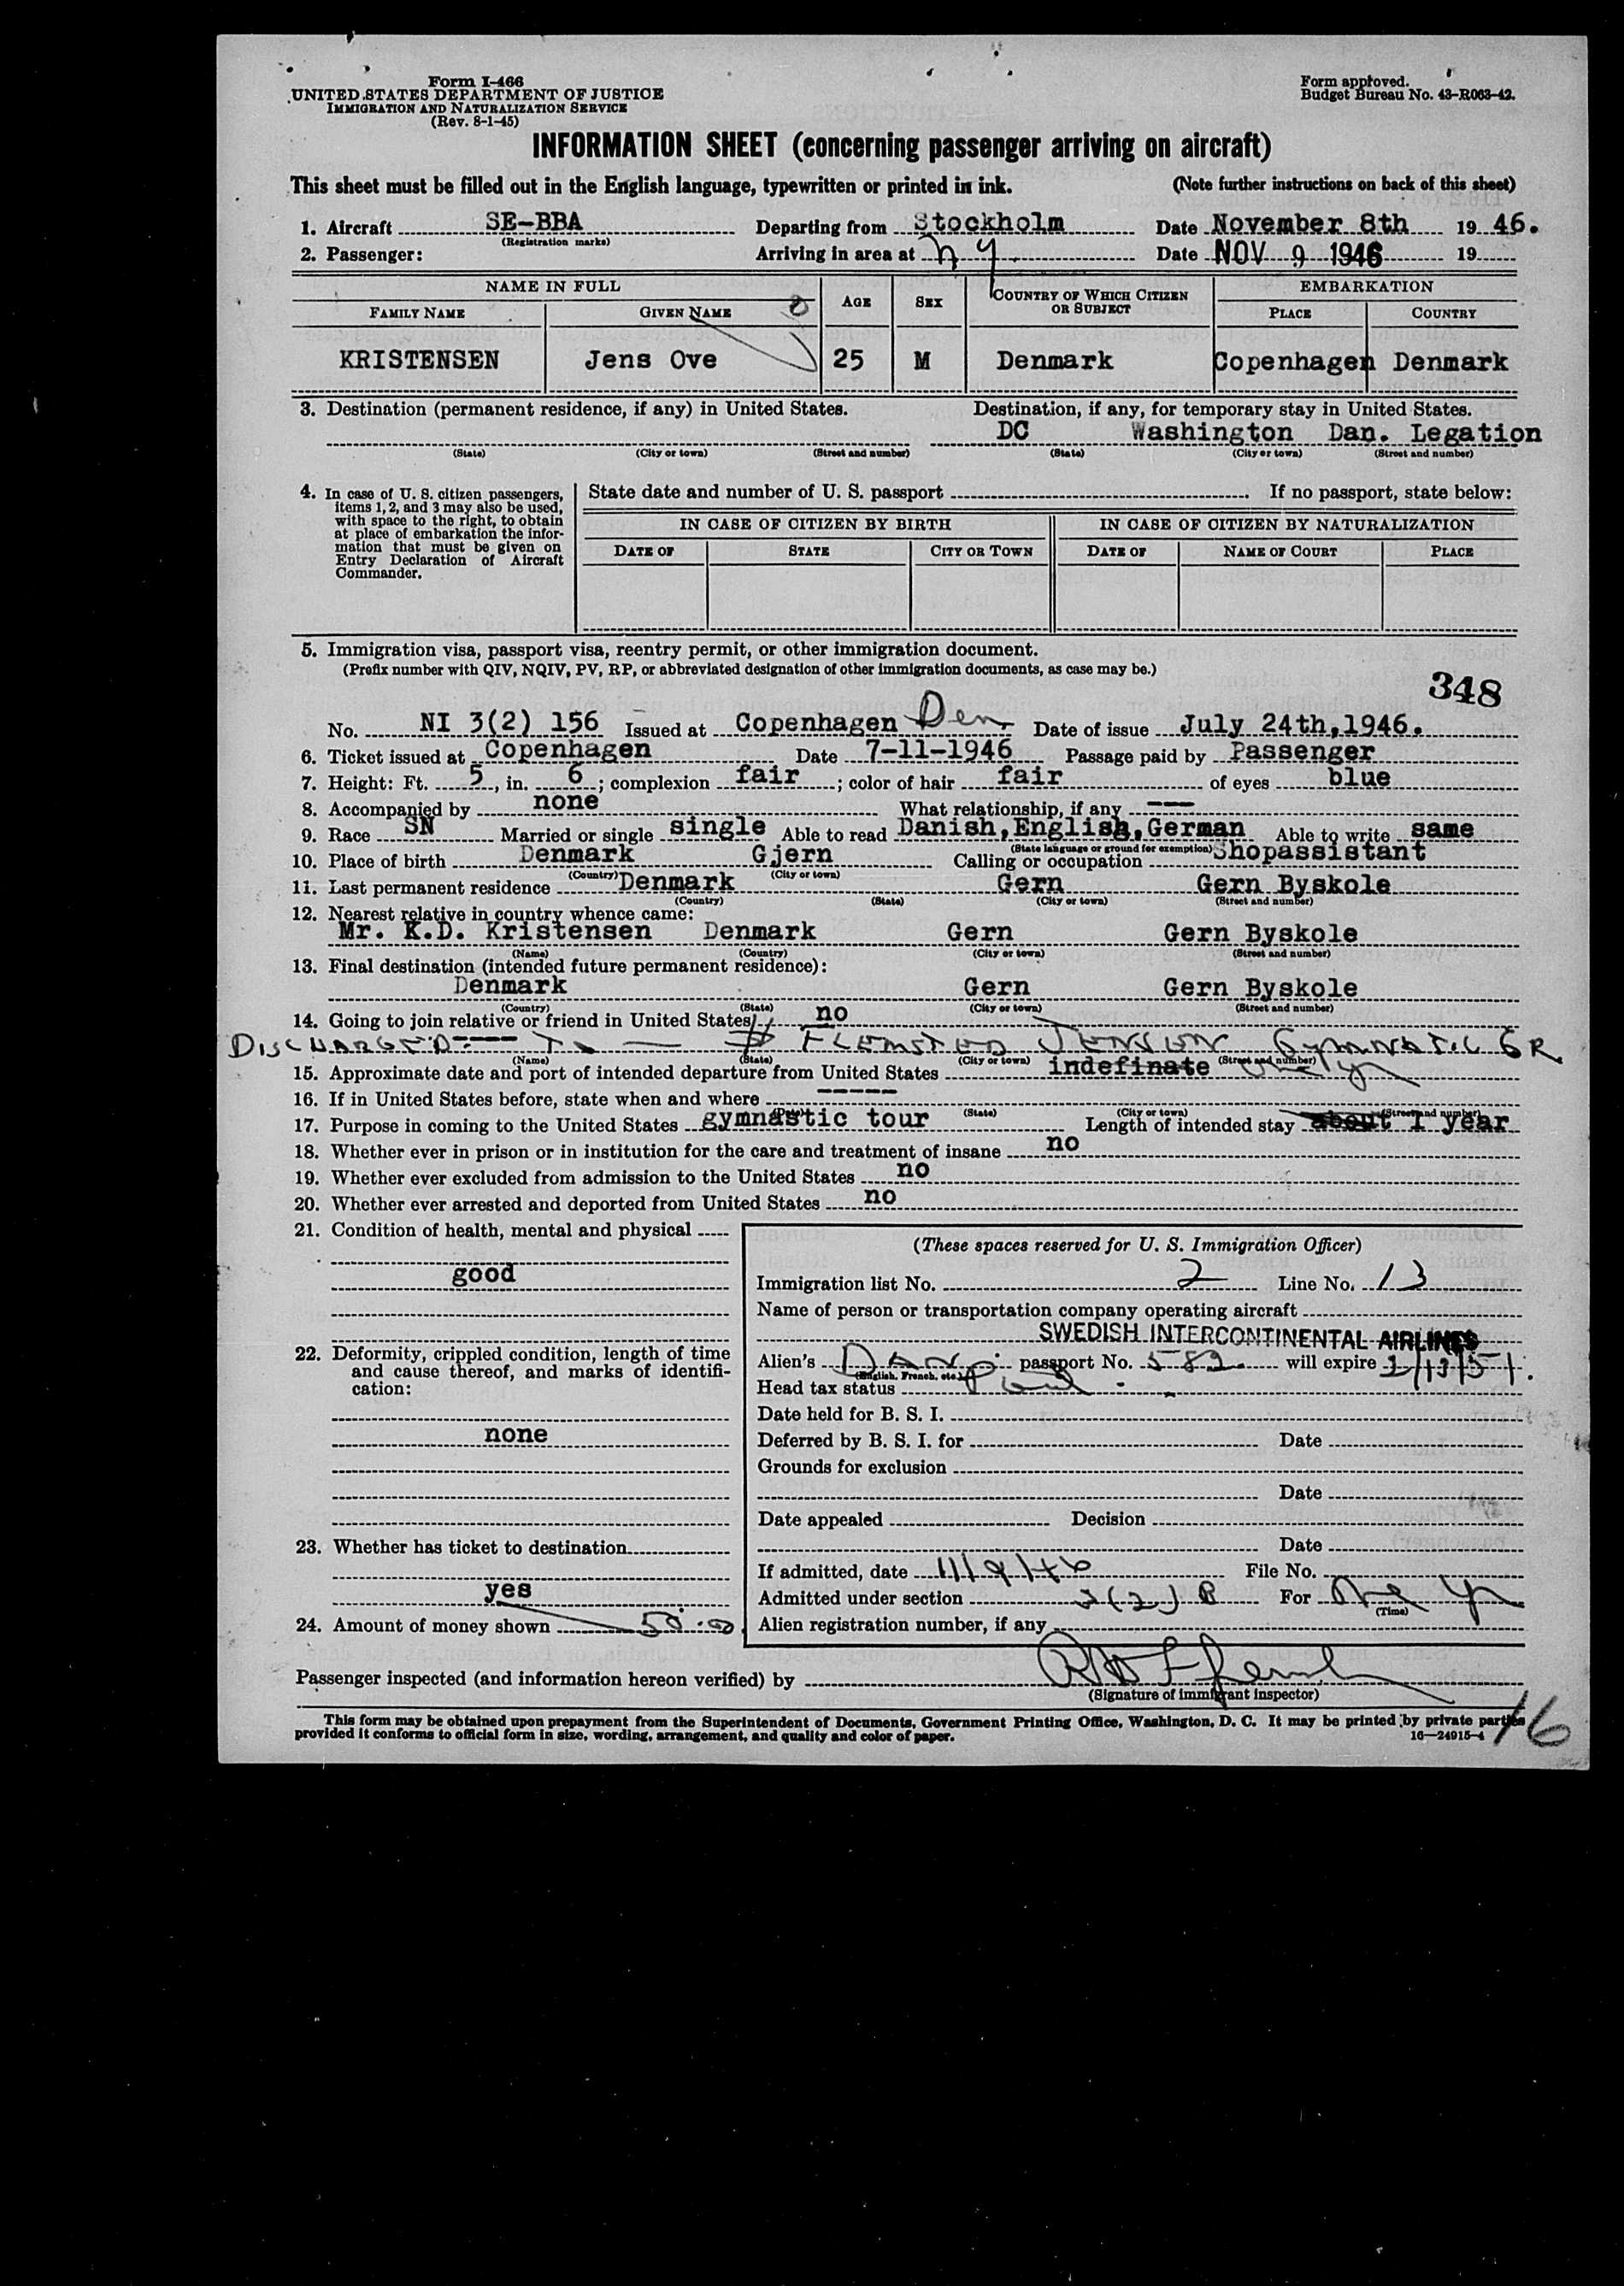 Form I-466
UNITED STATES DEPARTMENT OF JUSTICE
IMMIGRATION AND NATURALIZATION SERVICE
(Rev. 8-1-45)
Form approved.
Budget Bureau No. 43-R063-42.
INFORMATION SHEET (concerning passenger arriving on aircraft)
This sheet must be filled out in the English language, typewritten or printed in ink. (Note further instructions on back of this sheet)
1. Aircraft SE-BBA Departing from Stockholm Date November 8th 19 46.
(Registration marks)
2. Passenger: Arriving in area at N Y Date NOV 9 1946 19
NAME IN FULL AGE SEX COUNTRY OF WHICH CITIZEN OR SUBJECT EMBARKATION
FAMILY NAME GIVEN NAME PLACE COUNTRY
KRISTENSEN Jens Ove 25 M Denmark Copenhagen Denmark
3. Destination (permanent residence, if any) in United States. Destination, if any, for temporary stay in United States.
DC Washington Dan. Legation
(State) (City or town) (Street and number) (State) (City or town) (Street and number)
4. In case of U. S. citizen passengers, items 1, 2, and 3 may also be used, with space to the right, to obtain at place of embarkation the information that must be given on Entry Declaration of Aircraft Commander.
State date and number of U. S. passport If no passport, state below:
IN CASE OF CITIZEN BY BIRTH IN CASE OF CITIZEN BY NATURALIZATION
DATE OF STATE CITY OR TOWN DATE OF NAME OF COURT PLACE
5. Immigration visa, passport visa, reentry permit, or other immigration document.
(Prefix number with QIV, NQIV, PV, RP, or abbreviated designation of other immigration documents, as case may be.)
348
No. NI 3(2) 156 Issued at Copenhagen Den Date of issue July 24th, 1946.
6. Ticket issued at Copenhagen Date 7-11-1946 Passage paid by Passenger
7. Height: Ft. 5, in. 6; complexion fair; color of hair fair of eyes blue
8. Accompanied by none What relationship, if any ---
9. Race SN Married or single single Able to read Danish, English, German Able to write same
(State language or ground for exemption)
10. Place of birth Denmark Gjern Calling or occupation Shopassistant
(Country) (City or town)
11. Last permanent residence Denmark Gern Gern Byskole
(Country) (State) (City or town) (Street and number)
12. Nearest relative in country whence came:
Mr. K.D. Kristensen Denmark Gern Gern Byskole
(Name) (Country) (City or town) (Street and number)
13. Final destination (intended future permanent residence):
Denmark Gern Gern Byskole
(Country) (State) (City or town) (Street and number)
14. Going to join relative or friend in United States no
DISCHARGED TO FLEMSTED JENSEN GYMNASTIC GR.
(Name) (State) (City or town) (Street and number)
15. Approximate date and port of intended departure from United States indefinate
16. If in United States before, state when and where -----
(State) (City or town) (Street and number)
17. Purpose in coming to the United States gymnastic tour Length of intended stay about 1 year
18. Whether ever in prison or in institution for the care and treatment of insane no
19. Whether ever excluded from admission to the United States no
20. Whether ever arrested and deported from United States no
21. Condition of health, mental and physical
good
22. Deformity, crippled condition, length of time and cause thereof, and marks of identification:
none
23. Whether has ticket to destination
yes
24. Amount of money shown 50.00
(These spaces reserved for U. S. Immigration Officer)
Immigration list No. 2 Line No. 13
Name of person or transportation company operating aircraft
SWEDISH INTERCONTINENTAL AIRLINES
Alien's DAN passport No. 582 will expire 2/13/51.
(English, French, etc.)
Head tax status Paid
Date held for B. S. I.
Deferred by B. S. I. for Date
Grounds for exclusion
Date
Date appealed Decision
Date
If admitted, date 11/9/46 File No.
Admitted under section 3(2) B For One yr
(Time)
Alien registration number, if any
Passenger inspected (and information hereon verified) by
(Signature of immigrant inspector)
This form may be obtained upon prepayment from the Superintendent of Documents, Government Printing Office, Washington, D. C. It may be printed by private parties
provided it conforms to official form in size, wording, arrangement, and quality and color of paper. 16—24915-4
16